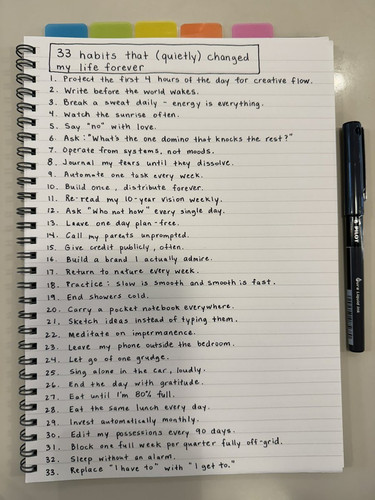 33 habits that (quietly) changed
my life forever
1. Protect the first 4 hours of the day for creative flow.
2. Write before the world wakes.
3. Break a sweat daily - energy is everything.
4. Watch the sunrise often.
5. Say "no" with love.
6. Ask: "What's the one domino that knocks the rest?"
7. Operate from systems, not moods.
8. Journal my fears until they dissolve.
9. Automate one task every week.
10. Build once, distribute forever.
11. Re-read my 10-year vision weekly.
12. Ask "Who not how" every single day.
13. Leave one day plan-free.
14. Call my parents unprompted.
15. Give credit publicly, often.
16. Build a brand I actually admire.
17. Return to nature every week.
18. Practice: Slow is smooth and smooth is fast.
19. End showers cold.
20. Carry a pocket notebook everywhere.
21. Sketch ideas instead of typing them.
22. Meditate on impermanence.
23. Leave my phone outside the bedroom.
24. Let go of one grudge.
25. Sing alone in the car, loudly.
26. End the day with gratitude.
27. Eat until I'm 80% full.
28. Eat the same lunch every day.
29. Invest automatically monthly.
30. Edit my possessions every 90 days.
31. Block one full week per quarter fully off-grid.
32. Sleep without an alarm.
33. Replace "I have to" with "I get to."
PILOT